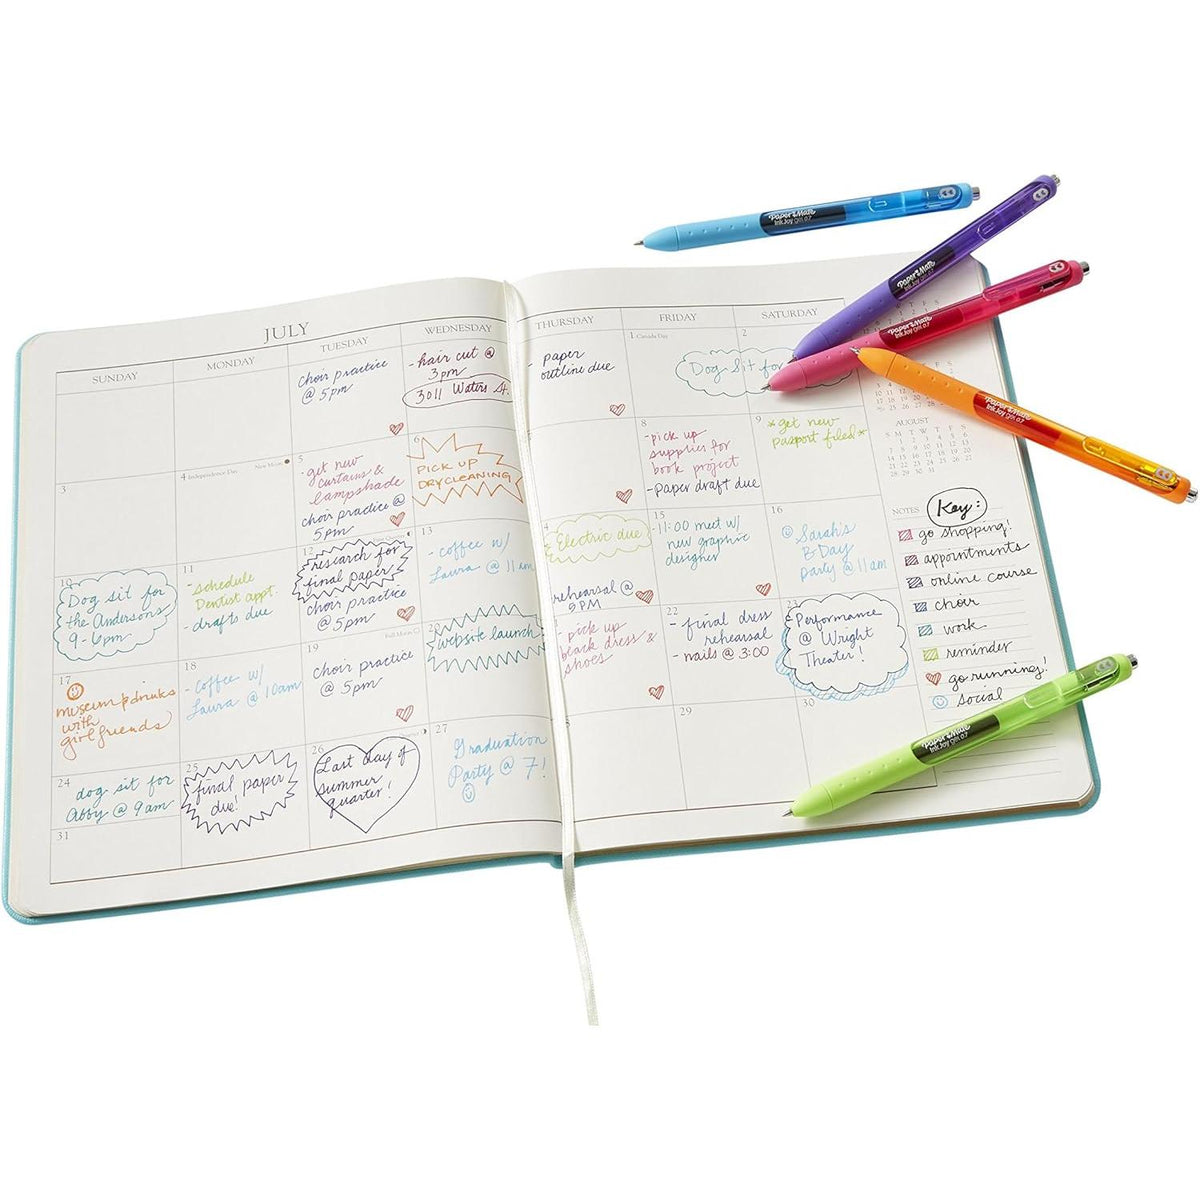 JULY
SUNDAY
MONDAY
TUESDAY
WEDNESDAY
THURSDAY
FRIDAY
SATURDAY
choir practice
@ 5pm
-hair cut @
3pm
3011 Waters St.
- paper
outline due
1 Canada Day
2
Dog Sit for
3
4 Independence Day
New Moon
5
-get new
curtains &
lampshade
choir practice @
5pm
6
PICK UP
DRYCLEANING
8
-pick up
supplies for
book project
-paper draft due
9
*get new
passport filed*
10
Dog sit for
the Andersons
9-6pm
11
-schedule
Dentist appt.
- drafts due
12
research for
final paper
choir practice
@ 5pm
13
- coffee w/
Laura @ 11am
Electric due
rehearsal @
5PM
15
11:00 meet w/
new graphic
designer
16
Sarah's
B-Day
party @ 11am
17
museum & drinks
with
girlfriends
18
-coffee w/
Laura @ 10am
19
Full Moon
choir practice
@ 5pm
20
website launch
- pick up
black dress &
shoes
22
- final dress
rehearsal
- nails @ 3:00
23
-Performance
@ Wright
Theater!
24
dog sit for
Abby @ 9am
25
final paper
due!
26
Last day of
summer
quarter!
27
Graduation
Party @ 7!
29
30
31
AUGUST
S M T W T F S
NOTES
Key:
go shopping!
appointments
online course
choir
work
reminder
go running!
social
Paper Mate
InkJoy gel 0.7
Paper Mate
InkJoy gel 0.7
Paper Mate
InkJoy gel 0.7
Paper Mate
InkJoy gel 0.7
Paper Mate
InkJoy gel 0.7